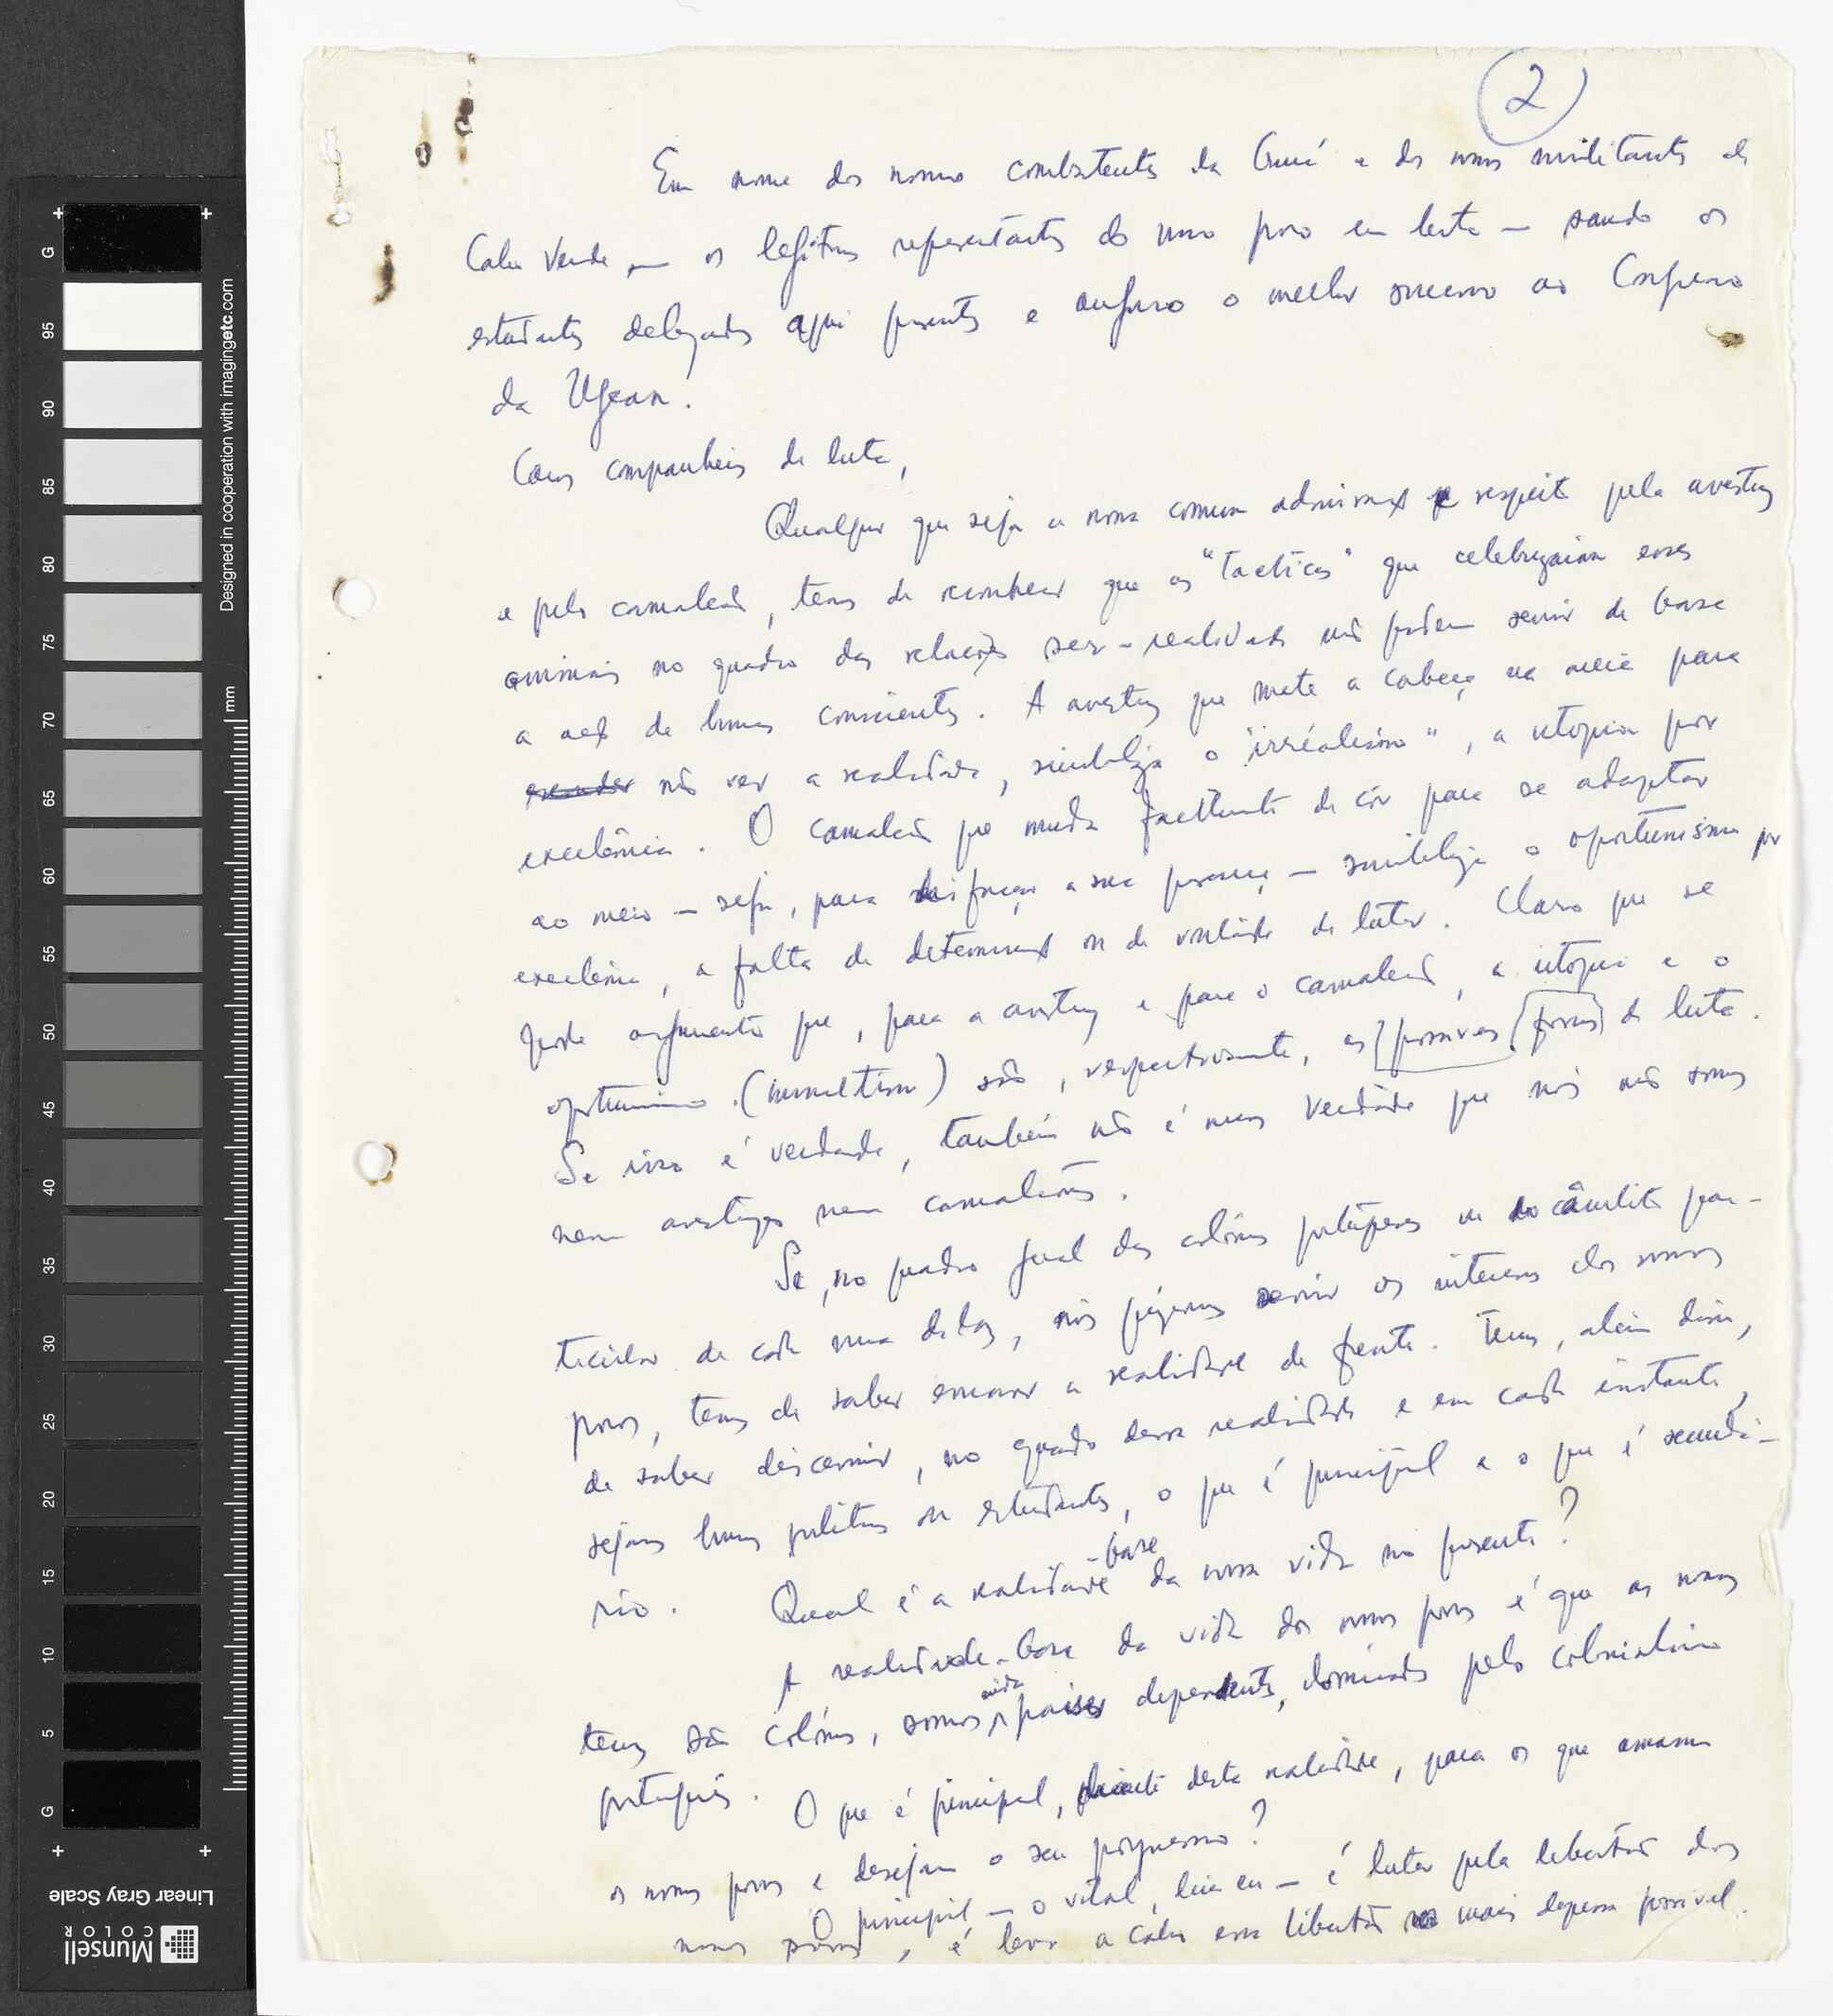 2
Em nome dos nossos combatentes da Guiné e dos nossos militantes de
Cabo Verde — os legítimos representantes do nosso povo em luta — saudo os
estudantes delegados aqui presentes e auguro o melhor sucesso ao Congresso
da Ugean.
Caros companheiros de luta,
Qualquer que seja a nossa comum admiração e respeito pela avestruz
e pelo camaleão, temos de reconhecer que as "tacticas" que celebrizaram esses
animais no quadro das relações ser-realidade não podem servir de base
a acção de homens conscientes. A avestruz que mete a cabeça na areia para
não ver a realidade, simboliza o "irréalismo", a utopia por
excelência. O camaleão que muda facilmente de côr para se adaptar
ao meio — seja, para disfarçar a sua presença — simboliza o oportunismo por
excelência, a falta de determinação ou de vontade de lutar. Claro que se
pode argumentar que, para a avestruz e para o camaleão, a utopia e o
oportunismo (mimetismo) são, respectivamente, as possíveis formas de luta.
Se isso é verdade, também não é menos verdade que nós não somos
nem avestruzes nem camaleões.
Se, no quadro geral das colónias portuguesas ou no âmbito par-
ticular de cada uma delas, nós quizermos servir os interesses dos nossos
povos, temos de saber encarar a realidade de frente. Temos, além disso,
de saber discernir, no quadro dessa realidade e em cada instante,
sejamos homens politicos ou estudantes, o que é principal e o que é secundá-
rio. Qual é a realidade-base da nossa vida no presente?
A realidade-base da vida dos nossos povos é que as nossas
terras são colónias, somos ainda paises dependentes, dominados pelo colonialismo
português. O que é principal, diante desta realidade, para os que amam
os nossos povos e desejam o seu progresso?
O principal — o vital, diria eu — é lutar pela libertação dos
nossos povos, é levar a cabo essa libertação o mais depressa possível.
Designed in cooperation with imagingetc.com
mm
G
95
90
85
80
75
70
65
60
55
50
45
40
35
30
25
20
15
10
5
G
Linear Gray Scale
Munsell
COLOR